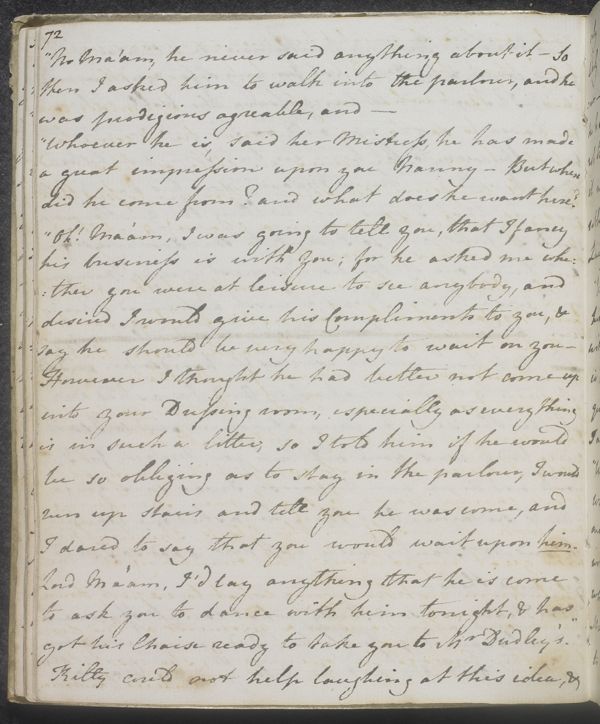 72
"No Ma'am, he never said anything about it — So
then I asked him to walk into the parlour, and he
was prodigious agreable, and —
"Whoever he is, said her Mistress, he has made
a great impression upon you Nanny — But where
did he come from? and what does he want here?
"Oh! Ma'am, I was going to tell you, that I fancy
his business is with you; for he asked me whe:
:ther you were at leisure to see anybody, and
desired I would give his Compliments to you, &
say he should be very happy to wait on you —
However I thought he had better not come up
into your Dressing room, especially as everything
is in such a litter, so I told him if he would
be so obliging as to stay in the parlour, I would
run up stairs and tell you he was come, and
I dared to say that you would wait upon him.
Lord Ma'am, I'd lay anything that he is come
to ask you to dance with him tonight, & has
got his Chaise ready to take you to Mr Dudley's."
Kitty could not help laughing at this idea, &